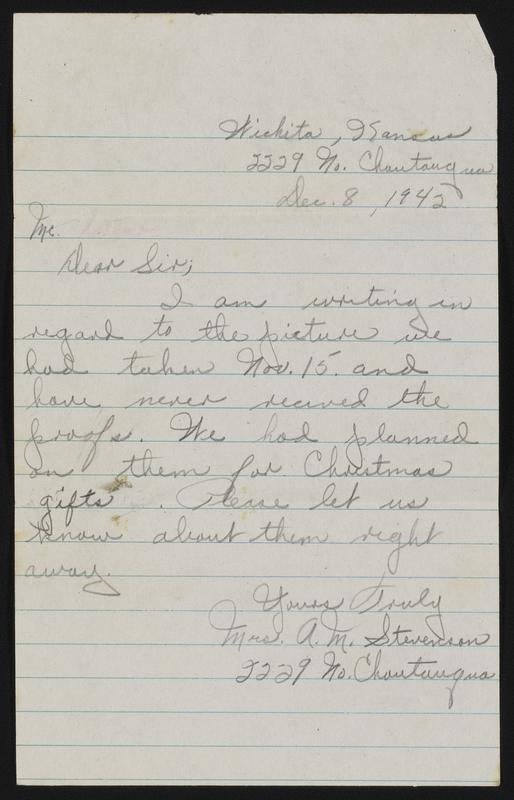 Wichita, Kansas
2229 No. Chautauqua
Dec. 8, 1942
Mr.
Dear Sir;
I am writing in
regard to the picture we
had taken Nov. 15. and
have never recived the
proofs. We had planned
on them for Christmas
gifts. Please let us
know about them right
away.
Yours Truly
Mrs. A. M. Stevenson
2229 No. Chautauqua